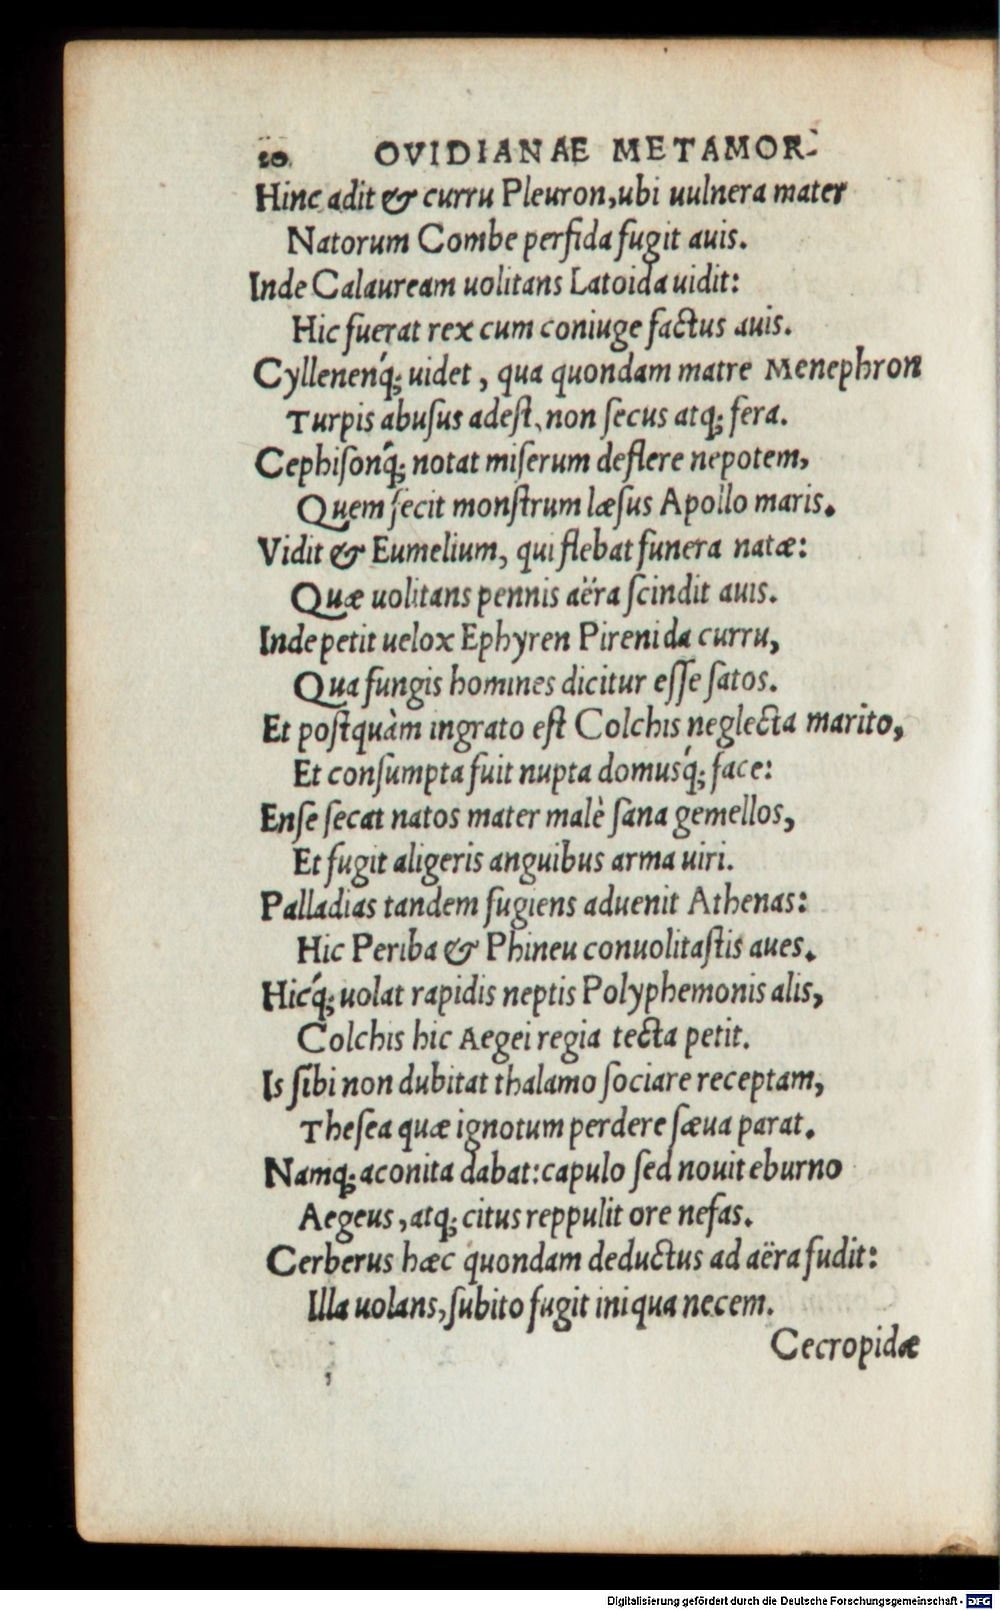 20 OVIDIANAE METAMOR-
Hinc adit & curru Pleuron, ubi uulnera mater
Natorum Combe perfida fugit auis.
Inde Calauream uolitans Latoida uidit:
Hic fuerat rex cum coniuge factus auis.
Cyllenenq́; uidet, qua quondam matre Menephron
Turpis abusus adest, non secus atq; fera.
Cephisonq́; notat miserum deflere nepotem,
Quem fecit monstrum læsus Apollo maris.
Vidit & Eumelium, qui flebat funera natæ:
Quæ uolitans pennis aëra scindit auis.
Inde petit uelox Ephyren Pirenida curru,
Qua fungis homines dicitur esse satos.
Et postquàm ingrato est Colchis neglecta marito,
Et consumpta fuit nupta domusq́; face:
Ense secat natos mater malè sana gemellos,
Et fugit aligeris anguibus arma uiri.
Palladias tandem fugiens aduenit Athenas:
Hic Periba & Phineu conuolitastis aues.
Hicq́; uolat rapidis neptis Polyphemonis alis,
Colchis hic Aegei regia tecta petit.
Is sibi non dubitat thalamo sociare receptam,
Thesea quæ ignotum perdere sæua parat.
Namq; aconita dabat: capulo sed nouit eburno
Aegeus, atq; citus reppulit ore nefas.
Cerberus hæc quondam deductus ad aëra fudit:
Illa uolans, subito fugit iniqua necem.
Cecropidæ
Digitalisierung gefördert durch die Deutsche Forschungsgemeinschaft - DFG